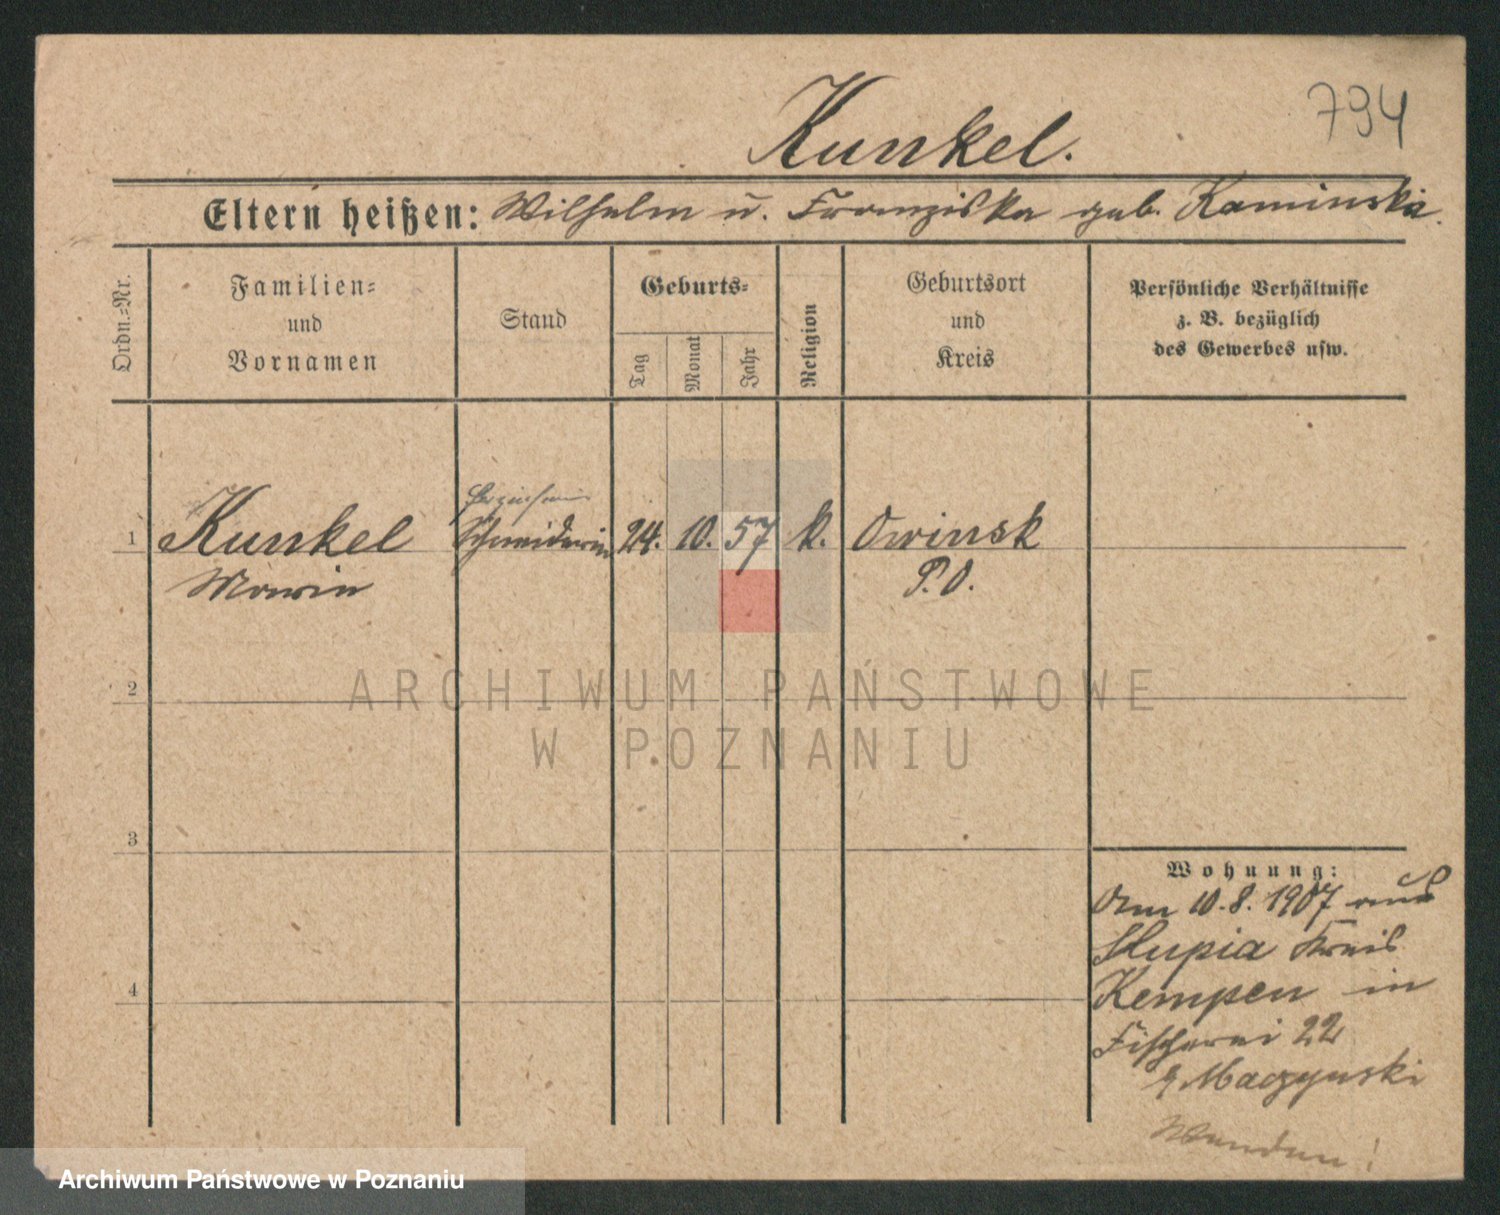 794
Kunkel.
Eltern heißen: Wilhelm u. Franziska geb. Kaminska.
Ordn.=Nr.
Familien=
und
Vornamen
Stand
Geburts=
Tag
Monat
Jahr
Religion
Geburtsort
und
Kreis
Persönliche Verhältnisse
z. B. bezüglich
des Gewerbes usw.
1 Kunkel Schneiderin 24. 10. 57 k. Owinsk
Maria P. O.
2
ARCHIWUM PAŃSTWOWE
W POZNANIU
3
Wohnung:
Am 10.8.1907 aus
Slupia Kreis
4
Kempen in
Fischerei 22
Maczynski
Wenden!
Archiwum Państwowe w Poznaniu